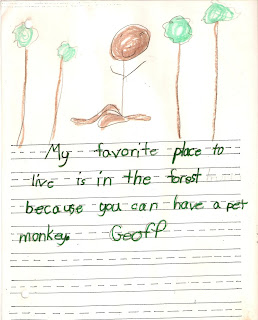 My favorite place to
live is in the forest
because you can have a pet
monkey. Geoff